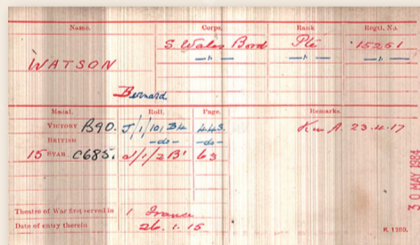 Name. Corps. Rank Regtl. No.
S. Wales Bord Pte 15251
WATSON —"— —"— —"—
Bernard
Medal. Roll. Page. Remarks.
VICTORY B90. J/1/101 B4 443. K in A. 23.4.17
BRITISH -do- -do-
15 STAR C685. J/1/2 B' 63
Theatre of War first served in 1 France
Date of entry therein 26.1.15
K 1380.
30 MAY 1984